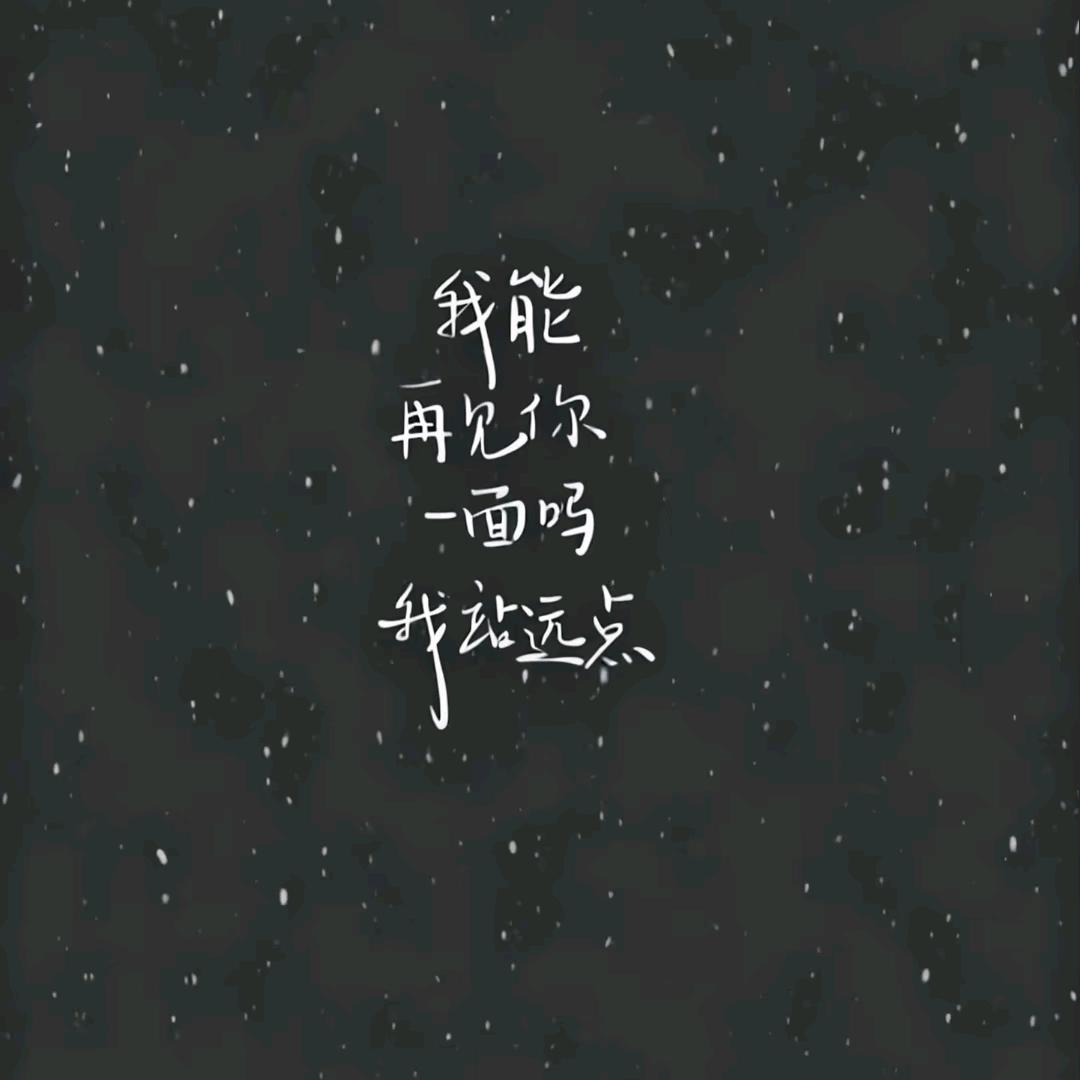 我能
再见你
一面吗
我站远点